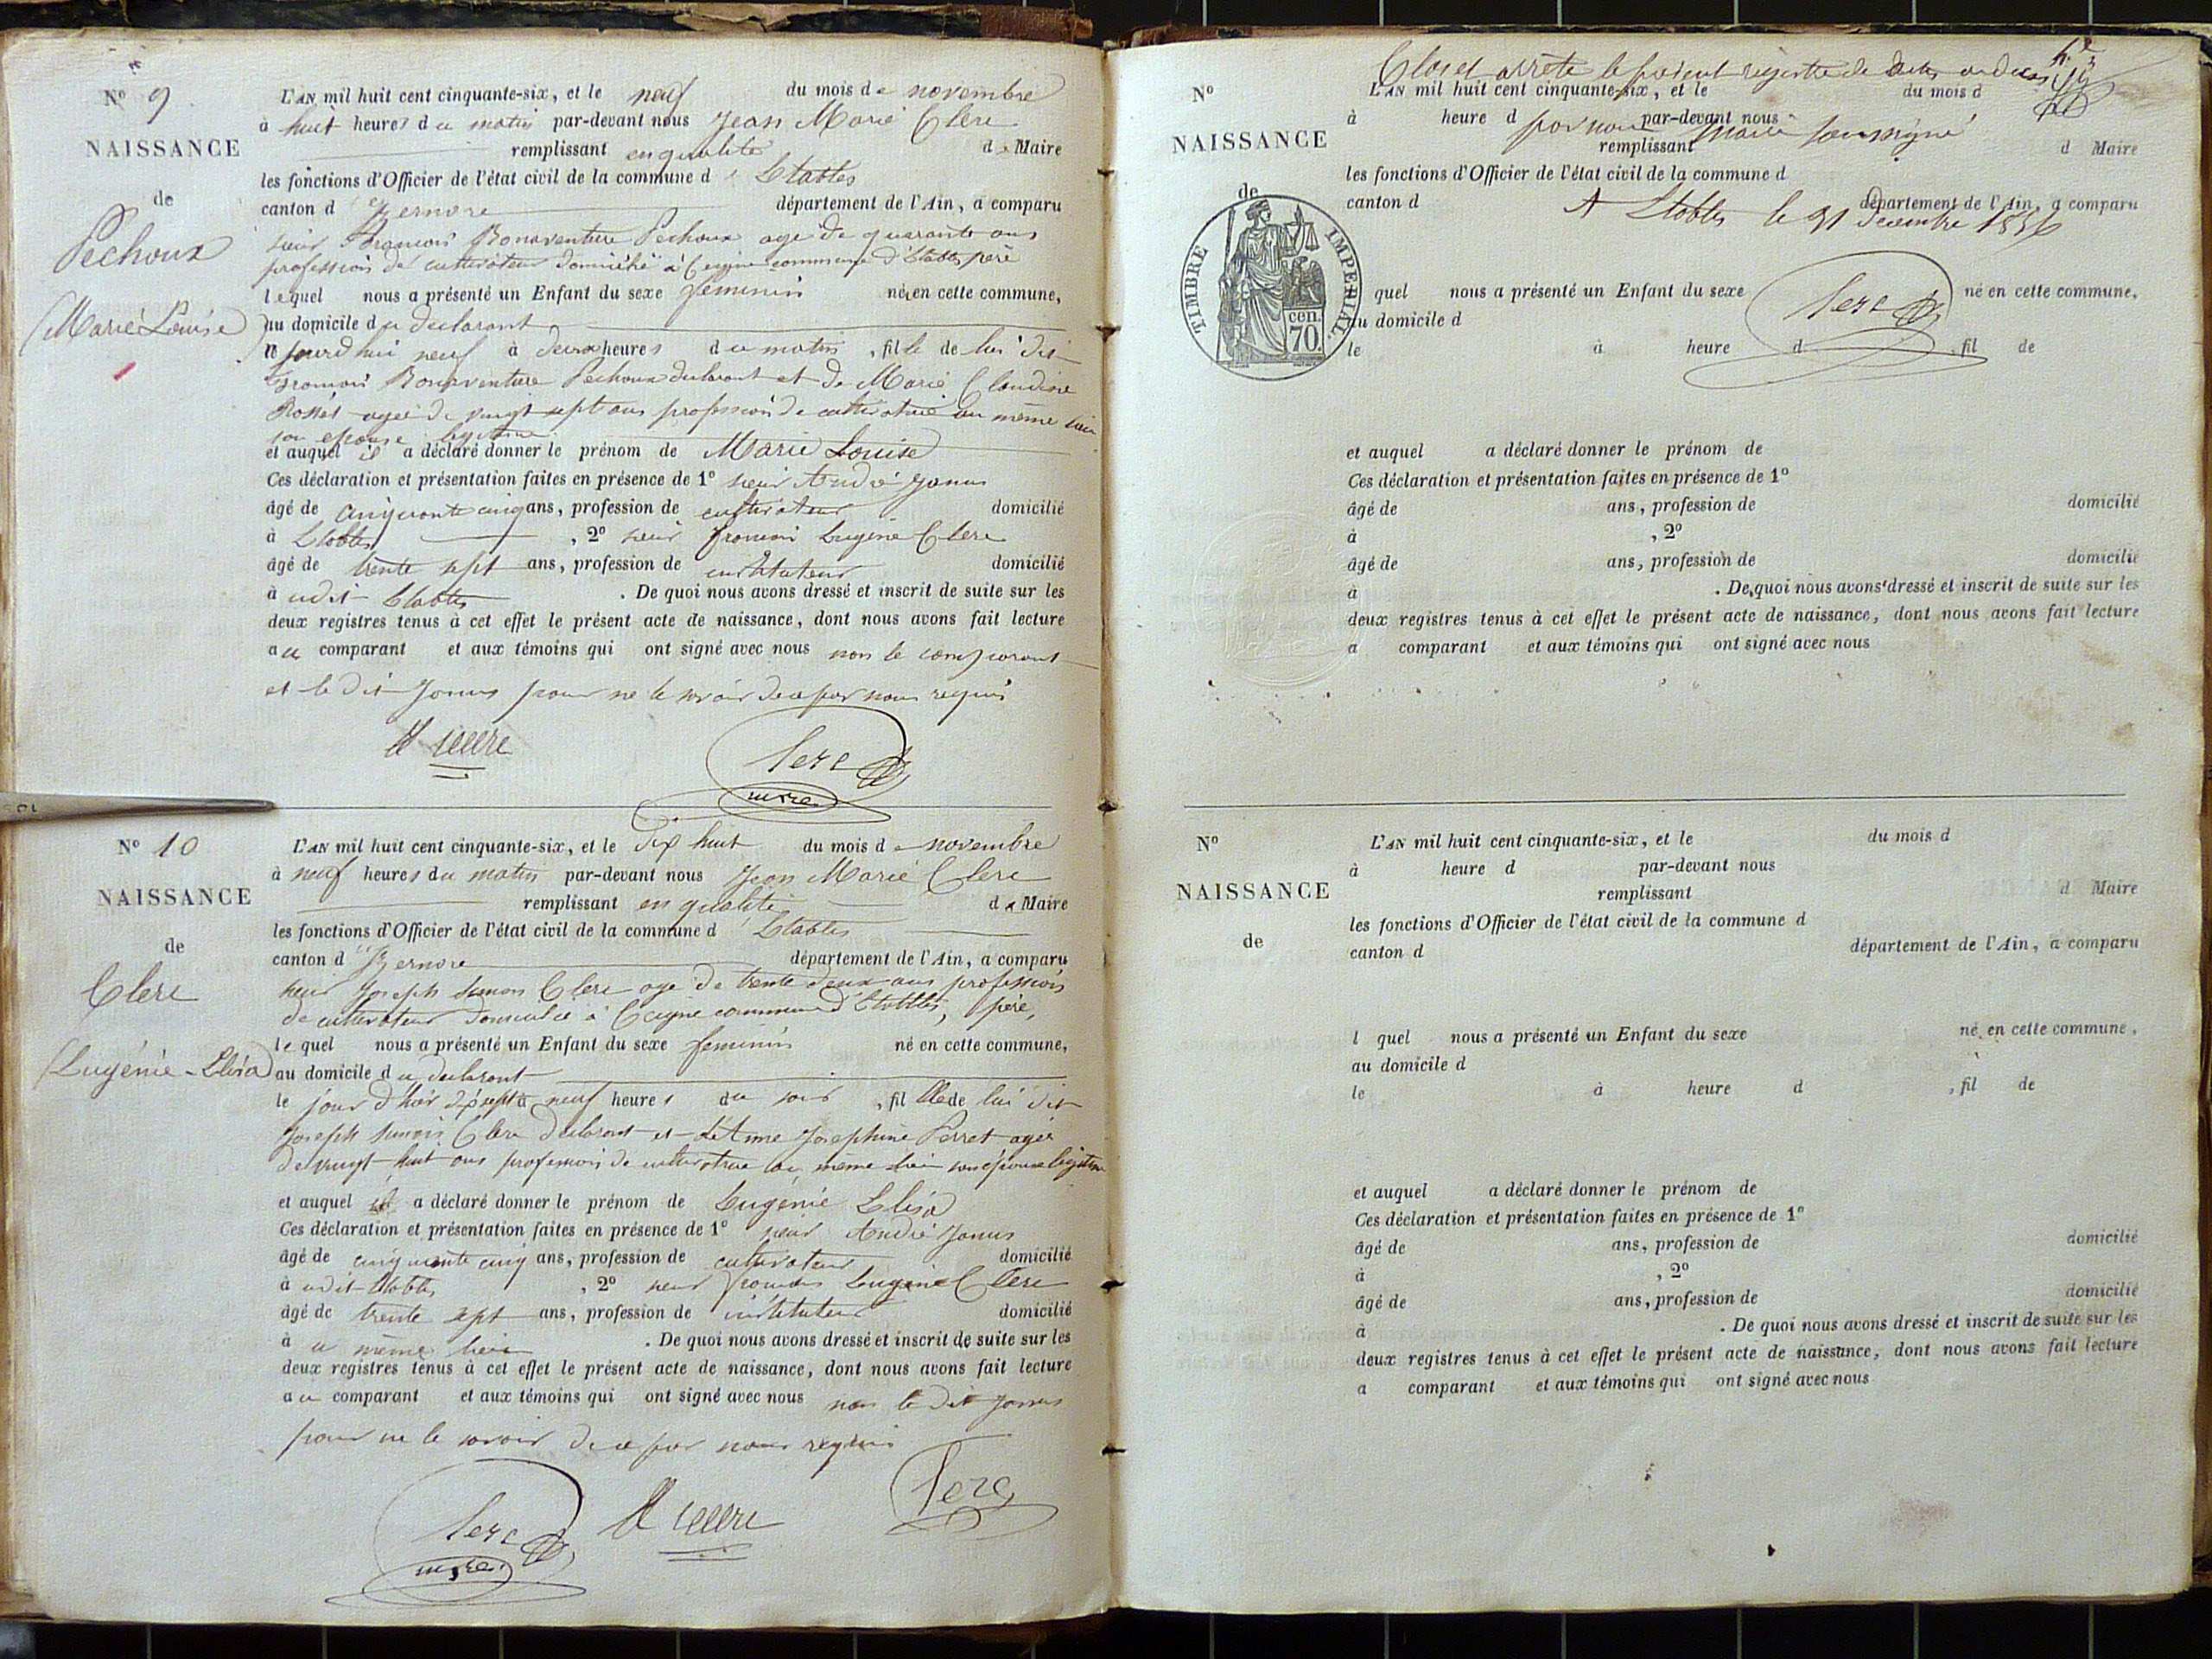 N° 9
NAISSANCE
de
Pechoux
Marie Louise
L'AN mil huit cent cinquante-six, et le neuf du mois de novembre
à huit heures du matin par-devant nous Jean Marie Clerc
remplissant en qualité de Maire
les fonctions d'Officier de l'état civil de la commune d'Etables
canton d département de l'Ain, a comparu
sieur François Bonaventure Pechoux age de quarante ans
profession de cultivateur domicilié à commune d'Etables, père
lequel nous a présenté un Enfant du sexe féminin née en cette commune,
au domicile du declarant
ce jourd'hui neuf à deux heures du matin, fille de lui dit
François Bonaventure Pechoux declarant et de Marie Claudine
agée de vingt sept ans profession de cultivatrice au même lieu
son epouse legitime
et auquel il a déclaré donner le prénom de Marie Louise
Ces déclaration et présentation faites en présence de 1° sieur André Janus
âgé de cinquante cinq ans, profession de cultivateur domicilié
à Etables, 2° sieur François Eugène Clerc
âgé de trente sept ans, profession de instituteur domicilié
à udit Etables. De quoi nous avons dressé et inscrit de suite sur les
deux registres tenus à cet effet le présent acte de naissance, dont nous avons fait lecture
au comparant et aux témoins qui ont signé avec nous non le comparant
et le dit Janus pour ne le savoir de ce par nous requis
Clerc
maire
N° 10
NAISSANCE
de
Clerc
Eugénie-Elisa
L'AN mil huit cent cinquante-six, et le dix huit du mois de novembre
à neuf heures du matin par-devant nous Jean Marie Clerc
remplissant en qualité de Maire
les fonctions d'Officier de l'état civil de la commune d'Etables
canton d département de l'Ain, a comparu
sieur Joseph Simon Clerc age de trente deux ans profession
de cultivateur domicilié à commune d'Etables, père,
lequel nous a présenté un Enfant du sexe feminin né en cette commune,
au domicile du declarant
le jour d'hier dix sept à neuf heures du soir, fille de lui dit
Joseph Simon Clerc declarant et de Anne Josephine Perret agée
de vingt huit ans profession de cultivatrice au même lieu son épouse legitime
et auquel il a déclaré donner le prénom de Eugénie Elisa
Ces déclaration et présentation faites en présence de 1° sieur André Janus
âgé de cinquante cinq ans, profession de cultivateur domicilié
à udit Etables, 2° sieur François Eugène Clerc
âgé de trente sept ans, profession de instituteur domicilié
à u même lieu. De quoi nous avons dressé et inscrit de suite sur les
deux registres tenus à cet effet le présent acte de naissance, dont nous avons fait lecture
au comparant et aux témoins qui ont signé avec nous non le dit Janus
pour ne le savoir de ce par nous requis
Clerc
maire
Clerc
Clos et arrêté le présent registre de
N°
NAISSANCE
de
TIMBRE IMPERIAL
cen.
70.
L'AN mil huit cent cinquante-six, et le du mois d
à heure d par-devant nous
par nous maire soussigné
remplissant d Maire
les fonctions d'Officier de l'état civil de la commune d
canton d département de l'Ain, a comparu
A Etables le 31 décembre 1856
l quel nous a présenté un Enfant du sexe né en cette commune,
Clerc
au domicile d
le à heure d, fil de
et auquel a déclaré donner le prénom de
Ces déclaration et présentation faites en présence de 1°
âgé de ans, profession de domicilié
à, 2°
âgé de ans, profession de domicilié
à. De quoi nous avons dressé et inscrit de suite sur les
deux registres tenus à cet effet le présent acte de naissance, dont nous avons fait lecture
a comparant et aux témoins qui ont signé avec nous
N°
NAISSANCE
de
L'AN mil huit cent cinquante-six, et le du mois d
à heure d par-devant nous
remplissant d Maire
les fonctions d'Officier de l'état civil de la commune d
canton d département de l'Ain, a comparu
l quel nous a présenté un Enfant du sexe né en cette commune,
au domicile d
le à heure d, fil de
et auquel a déclaré donner le prénom de
Ces déclaration et présentation faites en présence de 1°
âgé de ans, profession de domicilié
à, 2°
âgé de ans, profession de domicilié
à. De quoi nous avons dressé et inscrit de suite sur les
deux registres tenus à cet effet le présent acte de naissance, dont nous avons fait lecture
a comparant et aux témoins qui ont signé avec nous